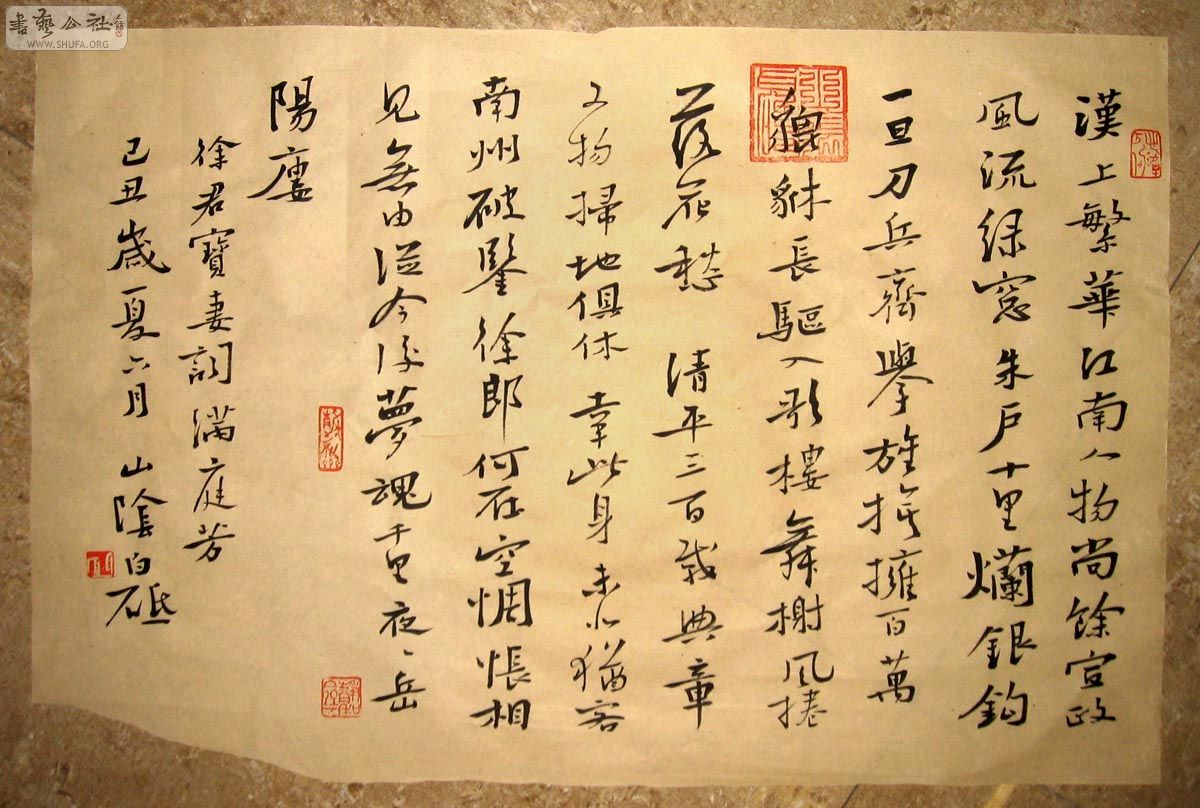 書藝公社
WWW.SHUFA.ORG
漢上繁華江南人物尚餘宣政
風流緑窓朱戶十里爛銀鈎
一旦刀兵齊舉旌旗擁百萬
貔貅長驅入歌樓舞榭風捲
落花愁 清平三百載典章
文物掃地俱休 幸此身未北猶客
南州破鑒徐郎何在空惆悵相
見無由從今後夢魂千里夜〻岳
陽廔
徐君寶妻詞滿庭芳
己丑歲夏六月 山陰白砥